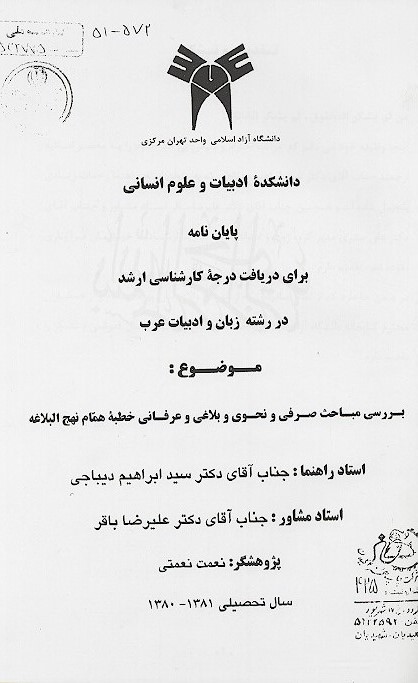 ۵۱-۵۷۲
دانشگاه آزاد اسلامی واحد تهران مرکزی
دانشکدهٔ ادبیات و علوم انسانی
پایان نامه
برای دریافت درجهٔ کارشناسی ارشد
در رشته زبان و ادبیات عرب
موضوع :
بررسی مباحث صرفی و نحوی و بلاغی و عرفانی خطبهٔ همّام نهج البلاغه
استاد راهنما : جناب آقای دکتر سید ابراهیم دیباجی
استاد مشاور : جناب آقای دکتر علیرضا باقر
پژوهشگر: نعمت نعمتی
سال تحصیلی ۱۳۸۱- ۱۳۸۰
۵۱۲۲۵۹۲